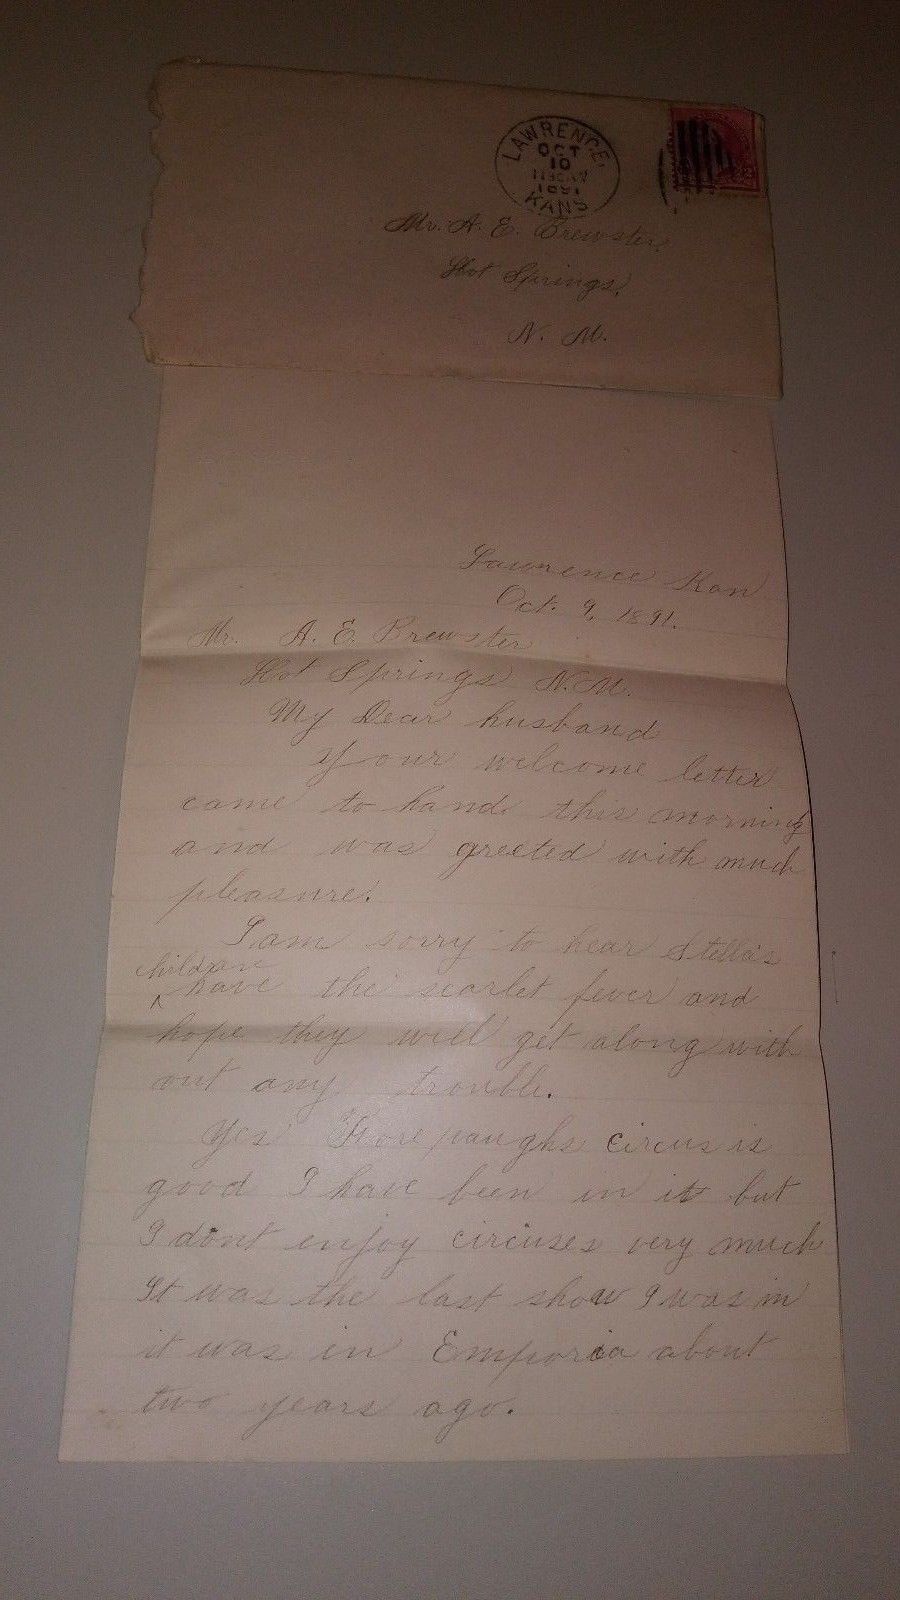 LAWRENCE,
OCT
10
1891
KANS
Mr. A. E. Brewster,
Hot Springs,
N. M.
Lawrence Kan
Oct. 9, 1891.
Mr. A. E. Brewster
Hot Springs N.M.
My Dear husband
Your welcome letter
came to hand this morning
and was greeted with much
pleasure.
I am sorry to hear Stella's
children
^ have the scarlet fever and
hope they will get along with
out any trouble.
Yes Forepaughs circus is
good I have been in it but
I dont enjoy circuses very much
It was the last show I was in
it was in Emporia about
two years ago.